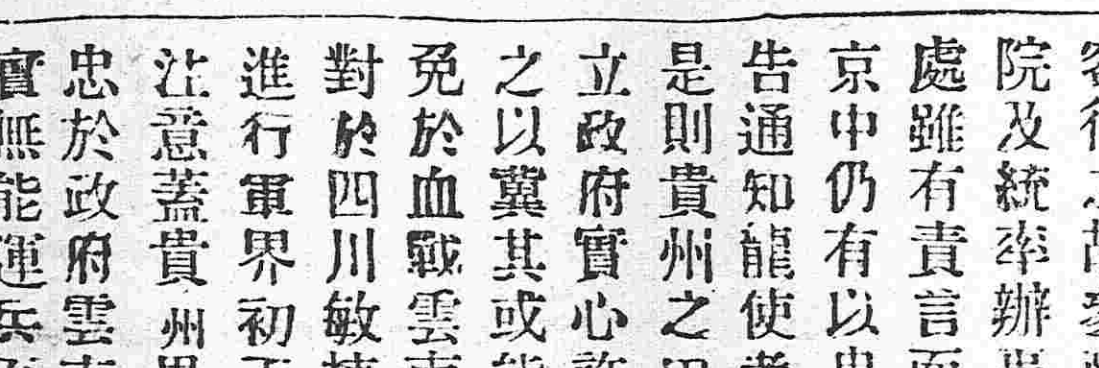 院及統率辦
處雖有責言
京中仍有以
告通知龍使
是則貴州之
立政府實心
之以冀其或
免於血戰雲
對於四川敏
進行軍界初
注意蓋貴州
忠於政府雲
實無能運兵